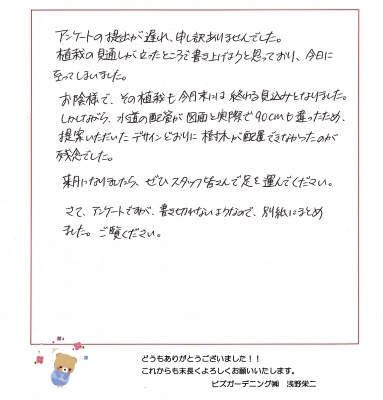 アンケートの提出が遅れ、申し訳ありませんでした。
植栽の見通しが立ったところで書き上げようと思っており、今日に
至ってしまいました。
お陰様で、その植栽も今月末には終わる見込みとなりました。
しかしながら、水道の配管が図面と実際で90cmも違ったため、
提案いただいたデザインどおりに樹木が配置できなかったのが
残念でした。
来月になりましたら、ぜひスタッフ皆さんで足を運んでください。
さて、アンケートですが、書き切れないようなので、別紙にまとめ
ました。ご覧ください。
どうもありがとうございました！！
これからも末長くよろしくお願いいたします。
ビズガーデニング㈱ 浅野栄二